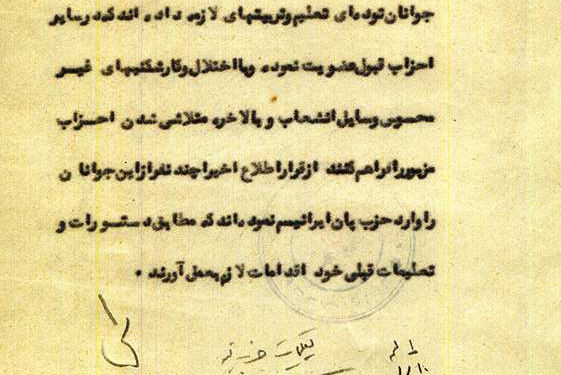 جوانان توده‌ای تعلیم و تربیتهای لازمه داده اند که در سایر
احزاب قبول عضویت نموده و با اختلال و کارشکنیهای غیر
محسوس وسایل انشعاب و بالاخره متلاشی شدن احزاب
مزبور را فراهم کنند از قرار اطلاع اخیرا چند نفر از این جوانان
را وارد حزب پان ایرانیسم نموده‌اند که مطابق دستورات و
تعلیمات قبلی خود اقدامات لازم بعمل آورند .